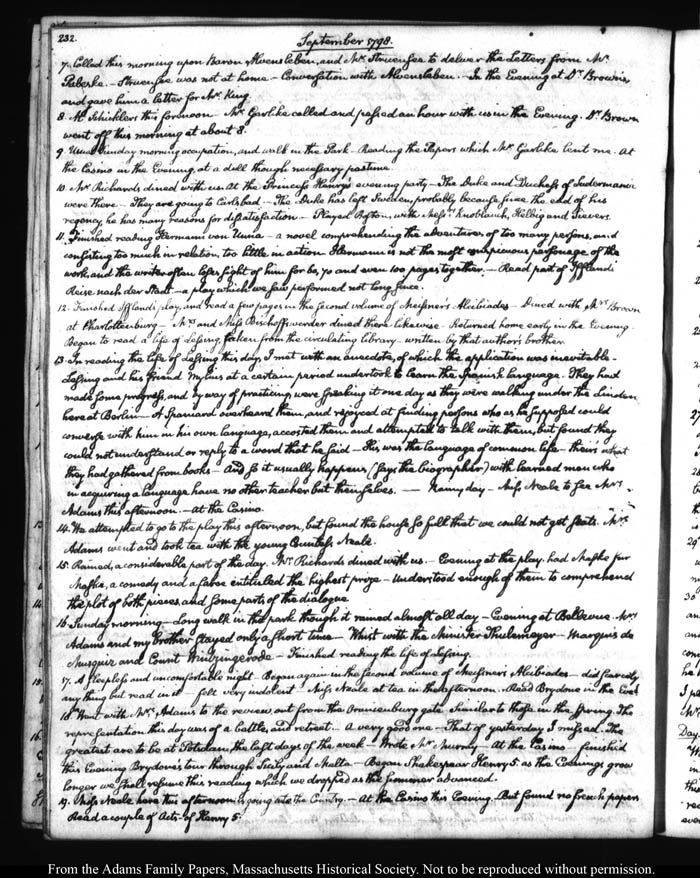 232.
September 1798.
7. Called this morning upon Baron Alvensleben, and Mr. Struensee to deliver the Letters from Mr.
Struensee was not at home — Conversation with Alvensleben. — In the Evening at Dr. Browns,
and gave him a letter for Mr. King
8. Mr. Schickler's this forenoon Mr. Garlike called and passed an hour with us in the Evening. Dr. Brown
went off this morning at about 8.
9. Usual Sunday morning occupation, and walk in the Park — Reading the Papers which Mr. Garlike lent me. At
the Casino in the Evening, at a dull though necessary pastime.
10. Mr. Richards dined with us. At the Princess Henry's evening party — The Duke and Duchess of Sudermania
were there — They are going to Carlsbad — The Duke has left Sweden, probably because since the end of his
regency, he has many reasons for dissatisfaction — Played Boston, with Messrs. Knoblauch, Helbig and Sievers.
11. Finished reading Hermann von Unna — a novel comprehending the adventures of too many persons, and
consisting too much in relation, too little in action Hermann is not the most conspicuous personage of the
work, and the writer often loses sight of him for 60, 70 and even 100 pages together. — Read part of Ifflands
Reise nach der Stadt — a play which we saw performed not long since.
12. Finished Ifflands play, and read a few pages in the second volume of Meissner's Alcibiades — Dined with Mrs. Brown
at Charlottenburg — Mrs. and Miss Bischoffswerder dined there likewise Returned home early in the Evening.
Began to read a life of Lessing, taken from the circulating library written by that author's brother
13. In reading the life of Lessing this day, I met with an anecdote, of which the application was inevitable.
Lessing and his friend Mylius at a certain period undertook to learn the Spanish language. They had
made some progress, and by way of practicing were speaking it one day as they were walking under the Linden
here at Berlin — A Spaniard overheard them, and rejoyced at finding persons who as he supposed could
converse with him in his own language, accosted them and attempted to talk with them, but found they
could not understand or reply to a word that he said — His was the language of common life — theirs what
they had gathered from books — And so it usually happens, (says the biographer) with learned men who
in acquiring a language have no other teacher but themselves. — day — Miss Neale to see Mrs.
Adams this afternoon. — at the Casino.
14. We attempted to go to the play this afternoon, but found the house so full that we could not get seats. Mrs.
Adams went and took tea with the young Countess Neale.
15. Rained, a considerable part of the day. Mr. Richards dined with us. — Evening at the play. had Maske für
Maske, a comedy and a farce entitled the highest prize — Understood enough of them to comprehend
the plot of both pieces, and some parts of the dialogue
16. Sunday morning — Long walk in the park though it rained almost all day — Evening at Bellevue. Mrs.
Adams and my brother stayed only a short time — Whist with the Minister Thulemeyer — Marquis de
Musquiz and Count Wintzingerode — Finished reading the life of Lessing.
17. A sleepless and uncomfortable night. Began again in the second volume of Meissner's Alcibiades — did scarcely
any thing but read in it — felt very indolent — Miss Neale at tea in the afternoon. Read Brydone in the Eveg
18. Went with Mrs. Adams to the review, out from the Oranienburg gate Similar to those in the Spring. The
representation this day was of a battle, and retreat. A very good one — That of yesterday I missed. The
greatest are to be at Potsdam the last days of the week — Wrote Mr. Murray — At the Casino — finish'd
this Evening Brydone's tour through Sicily and Malta. — Began Shakespear Henry 5. as the Evenings grow
longer we shall resume this reading which we dropped as the summer advanced.
19. Miss Neale here this afternoon is going into the Country. — At the Casino this Evening. But found no french papers
Read a couple of Acts of Henry 5.
From the Adams Family Papers, Massachusetts Historical Society. Not to be reproduced without permission.